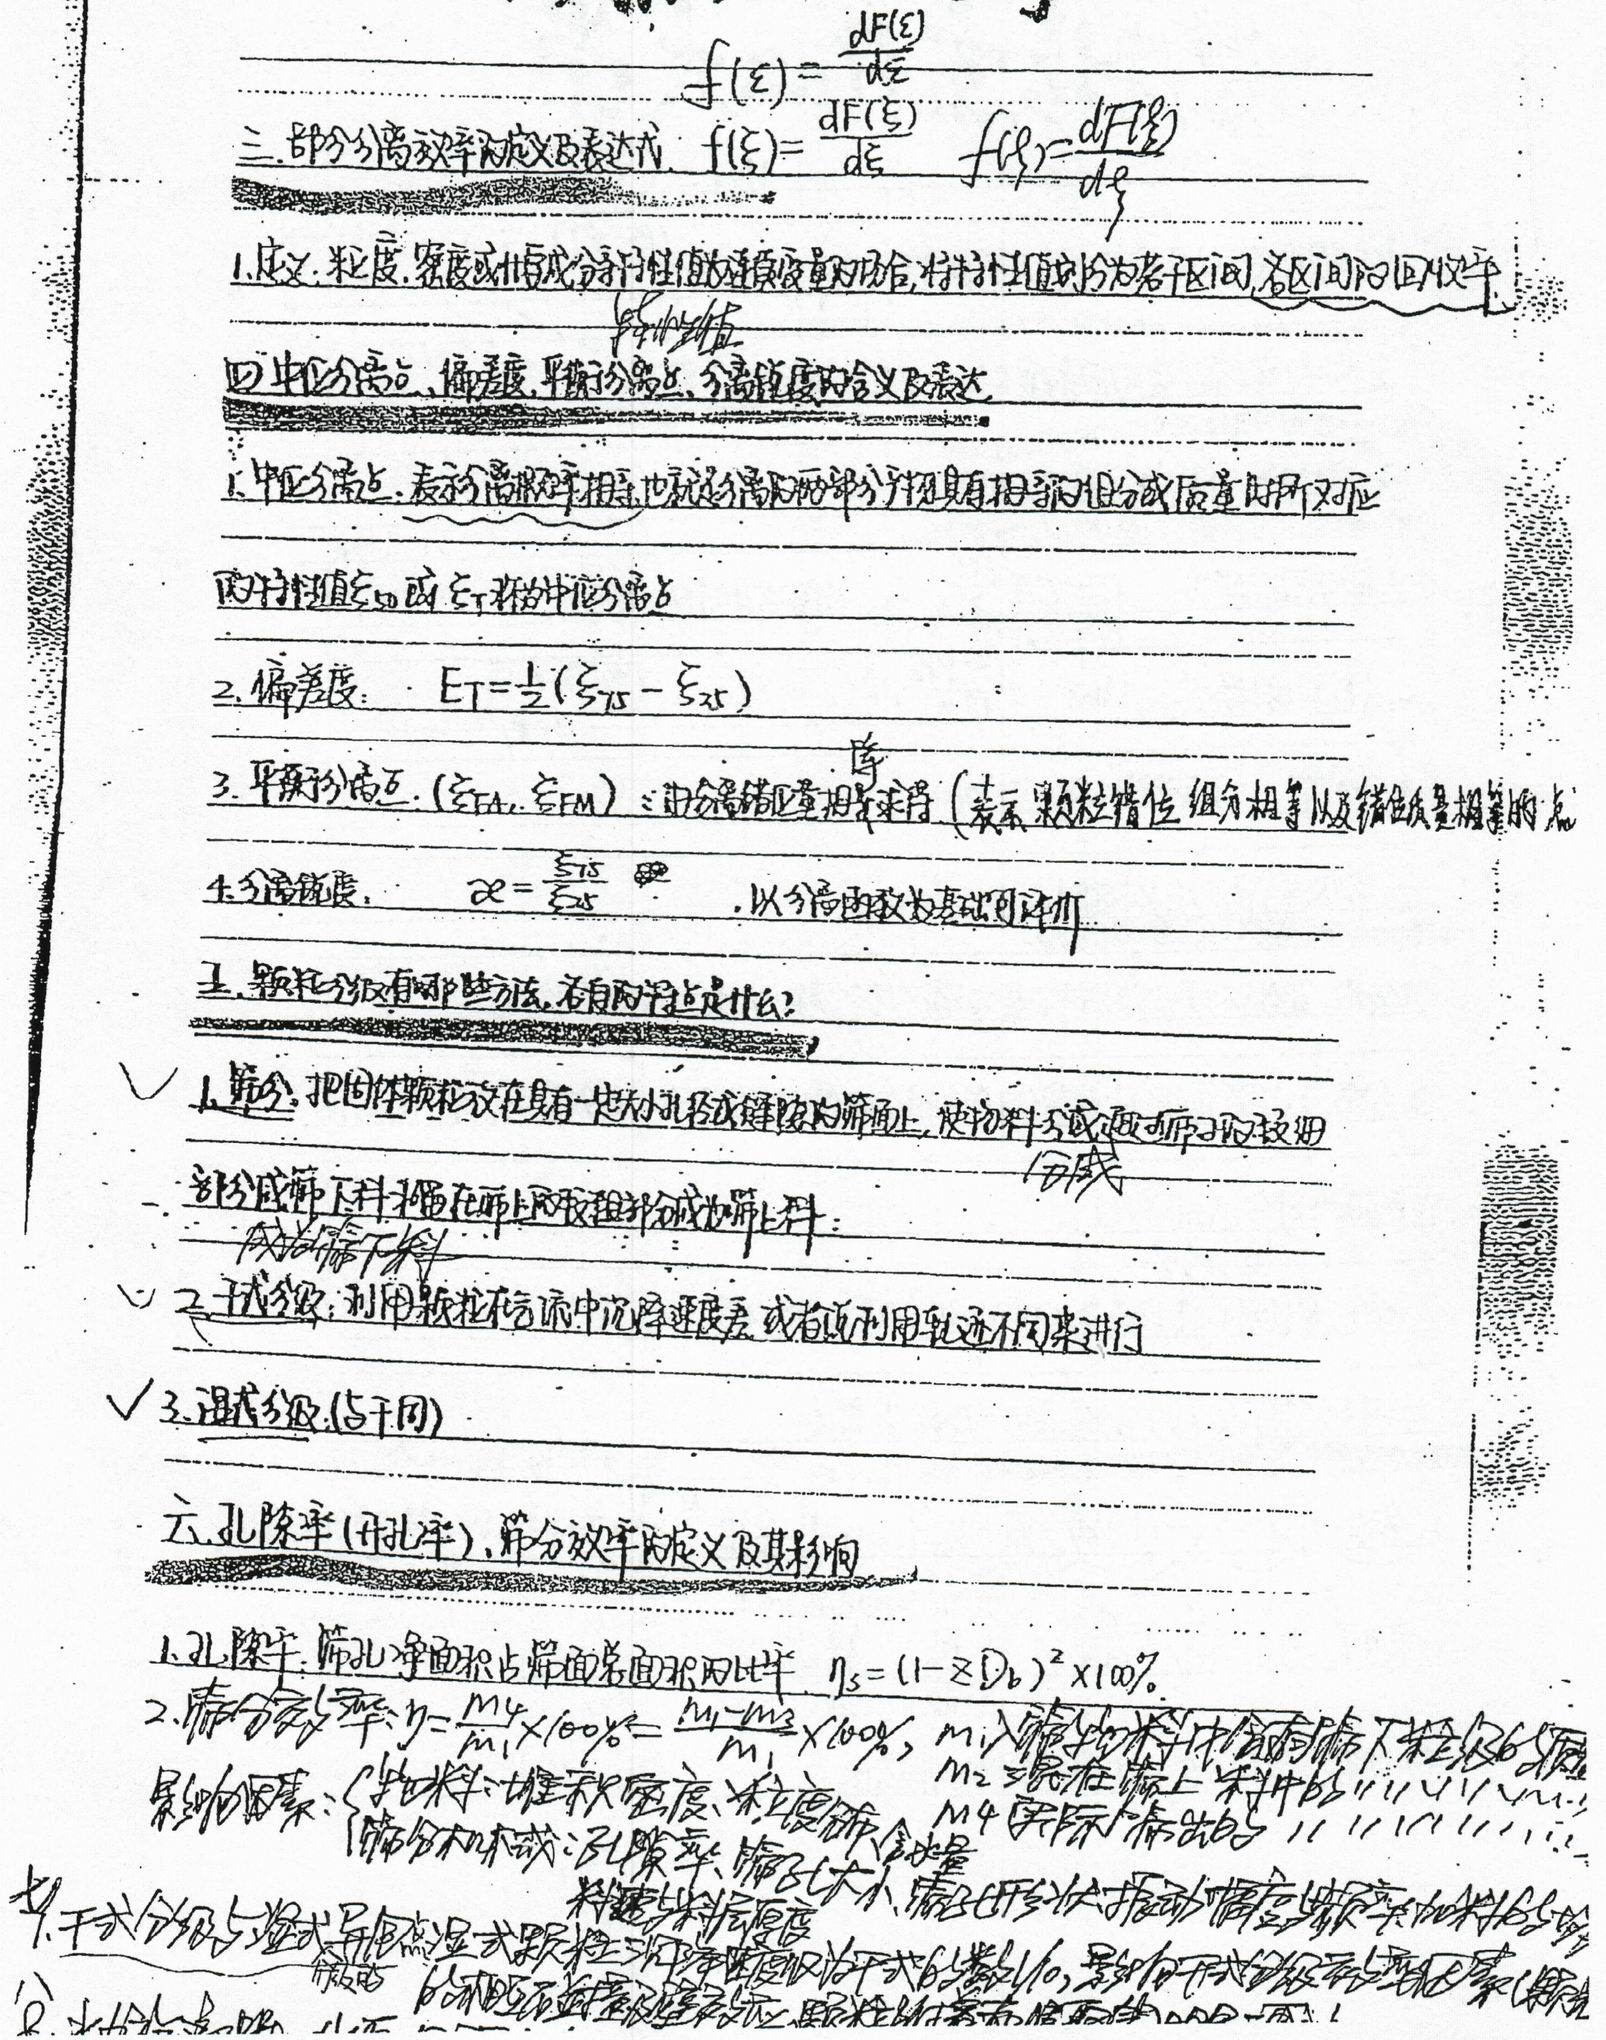 f(ξ)=dF(ξ)/dξ
三.部分分离效率的定义及表达式. f(ξ)=dF(ξ)/dξ f(ξ)=dF(ξ)/dξ
1.定义:粒度.密度或化学成分等特性值为连续变量的场合,将特性值划分为若干区间,各区间的回收率.
特性值
四.中位分离点、偏差度.平衡分离点、分离锐度的含义及表达
1.中位分离点.表示分离概率相等,也就是分离的两部分产物具有相等的组分或质量时所对应
的特性值ξ50或ξT称为中位分离点
2.偏差度: ET=1/2(ξ75-ξ25)
3.平衡分离点.(ξEA.ξEM):由分离错位量相等求得(表示颗粒错位组分相等以及错位质量相等的点
等
4.分离锐度. æ=ξ75/ξ25 .以分离函数为基础的评价
五.颗粒分级有哪些方法,各自的特点是什么?
1.筛分:把固体颗粒放在具有一定大小孔径或缝隙的筛面上,使物料分成通过筛子的较细
分成
部分成筛下料和留在筛上的较粗部分成为筛上料:
成为筛下料
2.干式分级:利用颗粒在气流中沉降速度差或者说利用轨迹不同来进行
3.湿式分级:(与干同)
六.孔隙率(开孔率)、筛分效率的定义及其影响
1.孔隙率:筛孔净面积占筛面总面积的比率 ηs=(1-ZDb)²×100%.
2.筛分效率:η=m4/m1×100%=m1-m3/m1×100%, m1入筛物料中含有筛下粒级的质
m2:混在筛上料中的〃〃〃〃
影响因素:物料:堆积密度、粒度分布、含水量
m4实际筛出的〃〃〃〃
筛分机械:孔隙率、筛孔大小、筛孔形状、振动幅度与频率、加料的均
料速与料层厚度
七.干式分级与湿式分级的异同点 湿式颗粒沉降速度仅为干式的数1/10,影响干式分级效率因素(颗粒